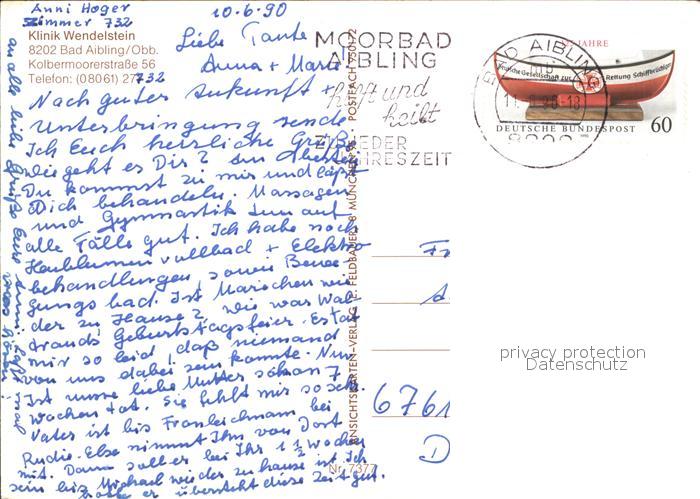 Anni Hoger
Zimmer 732
10.6.90
Klinik Wendelstein
8202 Bad Aibling/Obb.
Kolbermoorerstraße 56
Telefon: (08061) 27732
Liebe Tante
Anna + Marie
Nach guter Ankunft +
Unterbringung sende
Ich Euch herzliche Grüße
wie geht es Dir?
Du kommst zu mir und läßt
Dich behandeln. Massagen
und Gymnastik tun auf
alle Fälle gut. Ich habe noch
Heublumen vollbad + Elektro
behandlungen, sowie Bewe-
gungs bad. Ist Mariechen wie
der zu Hause?, wie war Wal
trauds Geburtstagsfeier. Es tat
mir so leid, daß niemand
von uns dabei sein konnte. Nun
Ist unsre liebe Mutter schon 7
Wochen tot. Sie fehlt mir so sehr.
Vater ist bis Fronleichnam bei
Rudi. Else nimmt Ihn von Dort
mit. Dann soll er bei Ihr 1 1/2 Wochen
sein bis Michael wieder zu hause ist. Ich
hoffe er übersteht diese Zeit gut.
an alle liebe Grüße Eure Anni
MOORBAD
AIBLING
hilft und
heilt
ZU JEDER
JAHRESZEIT
BAD AIBLING
8202
JAHRE
Deutsche Gesellschaft zur Rettung Schiffbrüchiger
DEUTSCHE BUNDESPOST 60
ANSICHTSKARTEN-VERLAG E. FELDBAUER 8 MÜNCHEN 75 POSTFACH 750172
Nr. 7377
6761
D
privacy protection
Datenschutz